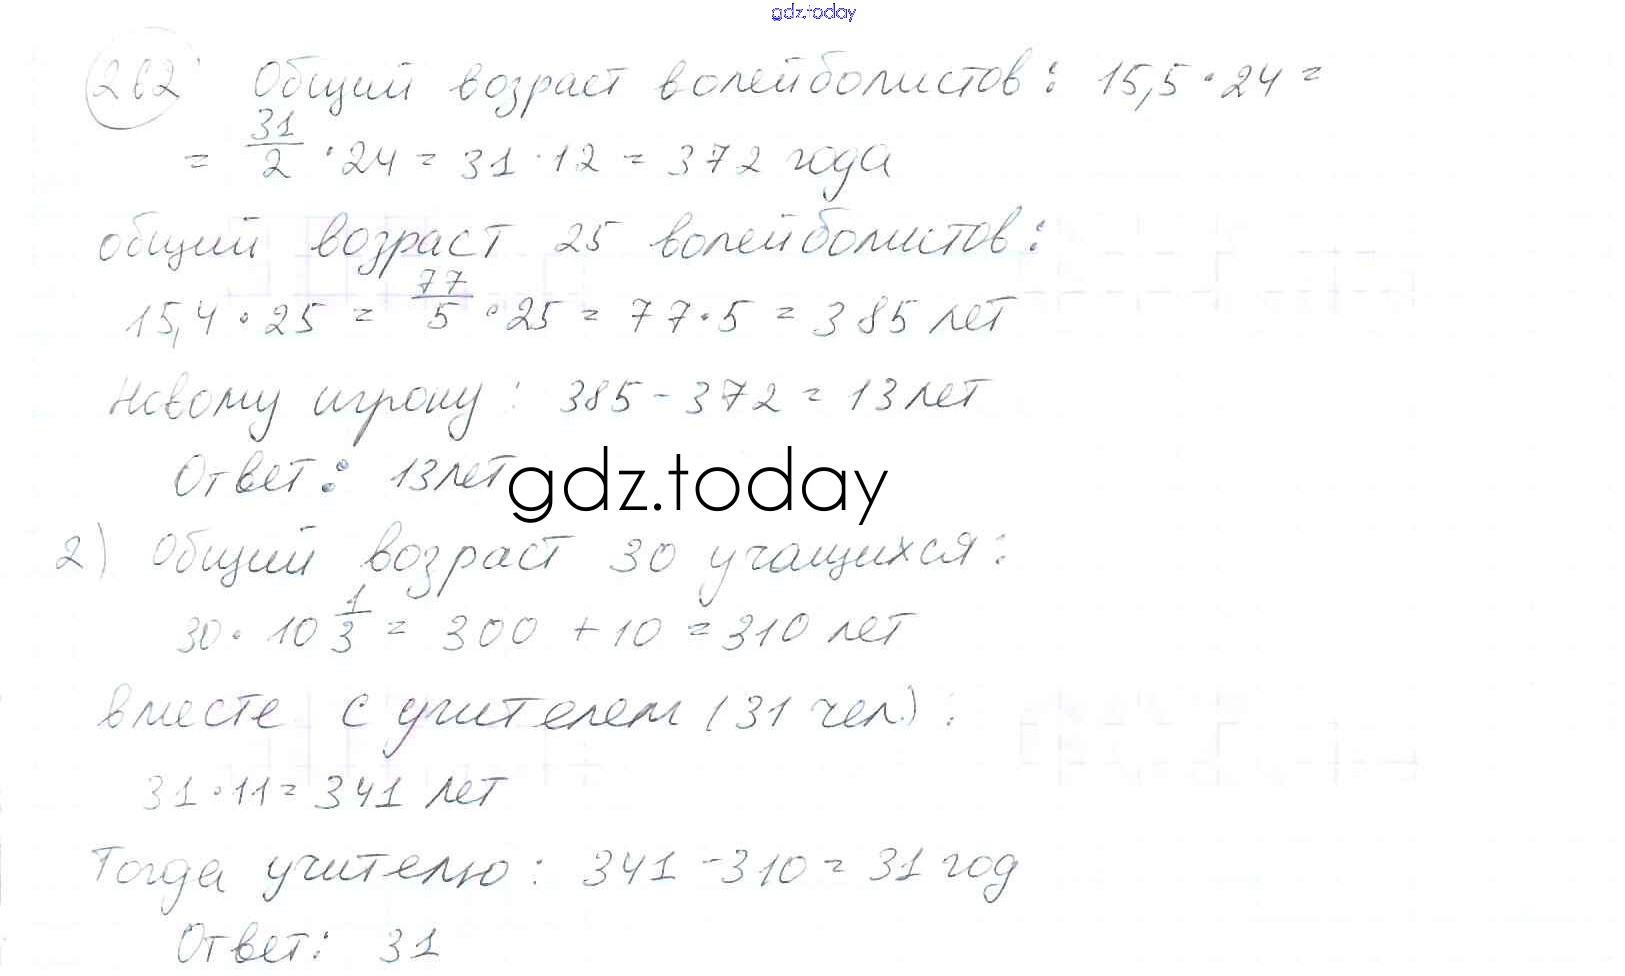 gdz.today
262 Общий возраст волейболистов: 15,5 · 24 =
= 31/2 · 24 = 31 · 12 = 372 года
общий возраст 25 волейболистов:
15,4 · 25 = 77/5 · 25 = 77 · 5 = 385 лет
Новому игроку: 385 - 372 = 13 лет
Ответ: 13 лет
gdz.today
2) Общий возраст 30 учащихся:
30 · 10 1/3 = 300 + 10 = 310 лет
вместе с учителем (31 чел.):
31 · 11 = 341 лет
Тогда учителю: 341 - 310 = 31 год
Ответ: 31